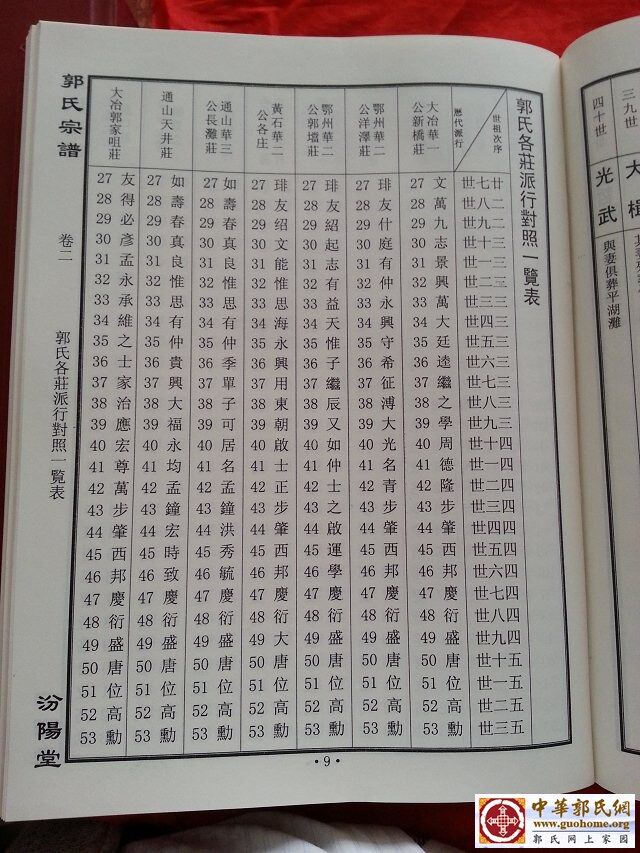 郭氏宗譜
卷二
郭氏各莊派行對照一覽表
汾陽堂
郭氏各莊派行對照一覽表
世祖次序
歷代派行
大冶華一
公新橋莊
鄂州華二
公洋澤莊
鄂州華二
公郭壋莊
黃石華二
公各庄
通山華三
公長灘莊
通山天井莊
大冶郭家咀莊
27 友 27 如 27 如 27 琲 27 琲 27 琲 27 文 世七廿
28 得 28 壽 28 壽 28 友 28 友 28 友 28 萬 世八二
29 必 29 春 29 春 29 绍 29 紹 29 什 29 九 世九二
30 彥 30 真 30 真 30 文 30 起 30 庭 30 志 世十三
31 孟 31 良 31 良 31 能 31 志 31 有 31 景 世一三
32 永 32 惟 32 惟 32 惟 32 有 32 仲 32 興 世二三
33 承 33 思 33 思 33 思 33 益 33 永 33 萬 世三三
34 維 34 有 34 有 34 海 34 天 34 興 34 大 世四三
35 之 35 仲 35 仲 35 永 35 惟 35 守 35 廷 世五三
36 士 36 貴 36 季 36 興 36 子 36 希 36 逵 世六三
37 家 37 興 37 單 37 用 37 繼 37 征 37 繼 世七三
38 治 38 大 38 子 38 東 38 辰 38 溥 38 之 世八三
39 應 39 福 39 可 39 朝 39 又 39 大 39 學 世九三
40 宏 40 永 40 居 40 啟 40 如 40 光 40 周 世十四
41 尊 41 均 41 名 41 士 41 仲 41 名 41 德 世一四
42 萬 42 孟 42 孟 42 正 42 士 42 青 42 隆 世二四
43 步 43 鐘 43 鐘 43 步 43 之 43 步 43 步 世三四
44 肇 44 宏 44 洪 44 肇 44 啟 44 肇 44 肇 世四四
45 西 45 時 45 秀 45 西 45 運 45 西 45 西 世五四
46 邦 46 致 46 毓 46 邦 46 學 46 邦 46 邦 世六四
47 慶 47 慶 47 慶 47 慶 47 慶 47 慶 47 慶 世七四
48 衍 48 衍 48 衍 48 衍 48 衍 48 衍 48 衍 世八四
49 盛 49 盛 49 盛 49 大 49 盛 49 盛 49 盛 世九四
50 唐 50 唐 50 唐 50 唐 50 唐 50 唐 50 唐 世十五
51 位 51 位 51 位 51 位 51 位 51 位 51 位 世一五
52 高 52 高 52 高 52 高 52 高 52 高 52 高 世二五
53 勳 53 勳 53 勳 53 勳 53 勳 53 勳 53 勳 世三五
·9·
三九世
四十世
光武
與妻俱葬平湖灘
中華郭氏網
www.guohome.org
郭氏网上家园